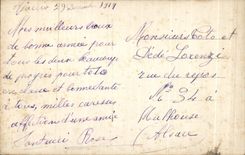 29 1919
Mes meilleurs vœux
de bonne année pour
tous les deux beaucoup
de progrès pour toto
en classe et
à tous, milles caresses
affection d'une amie
Rose
Monsieurs Toto et
Dédé Lorentz
rue du repos
No 34 à
Mulhouse
Alsace